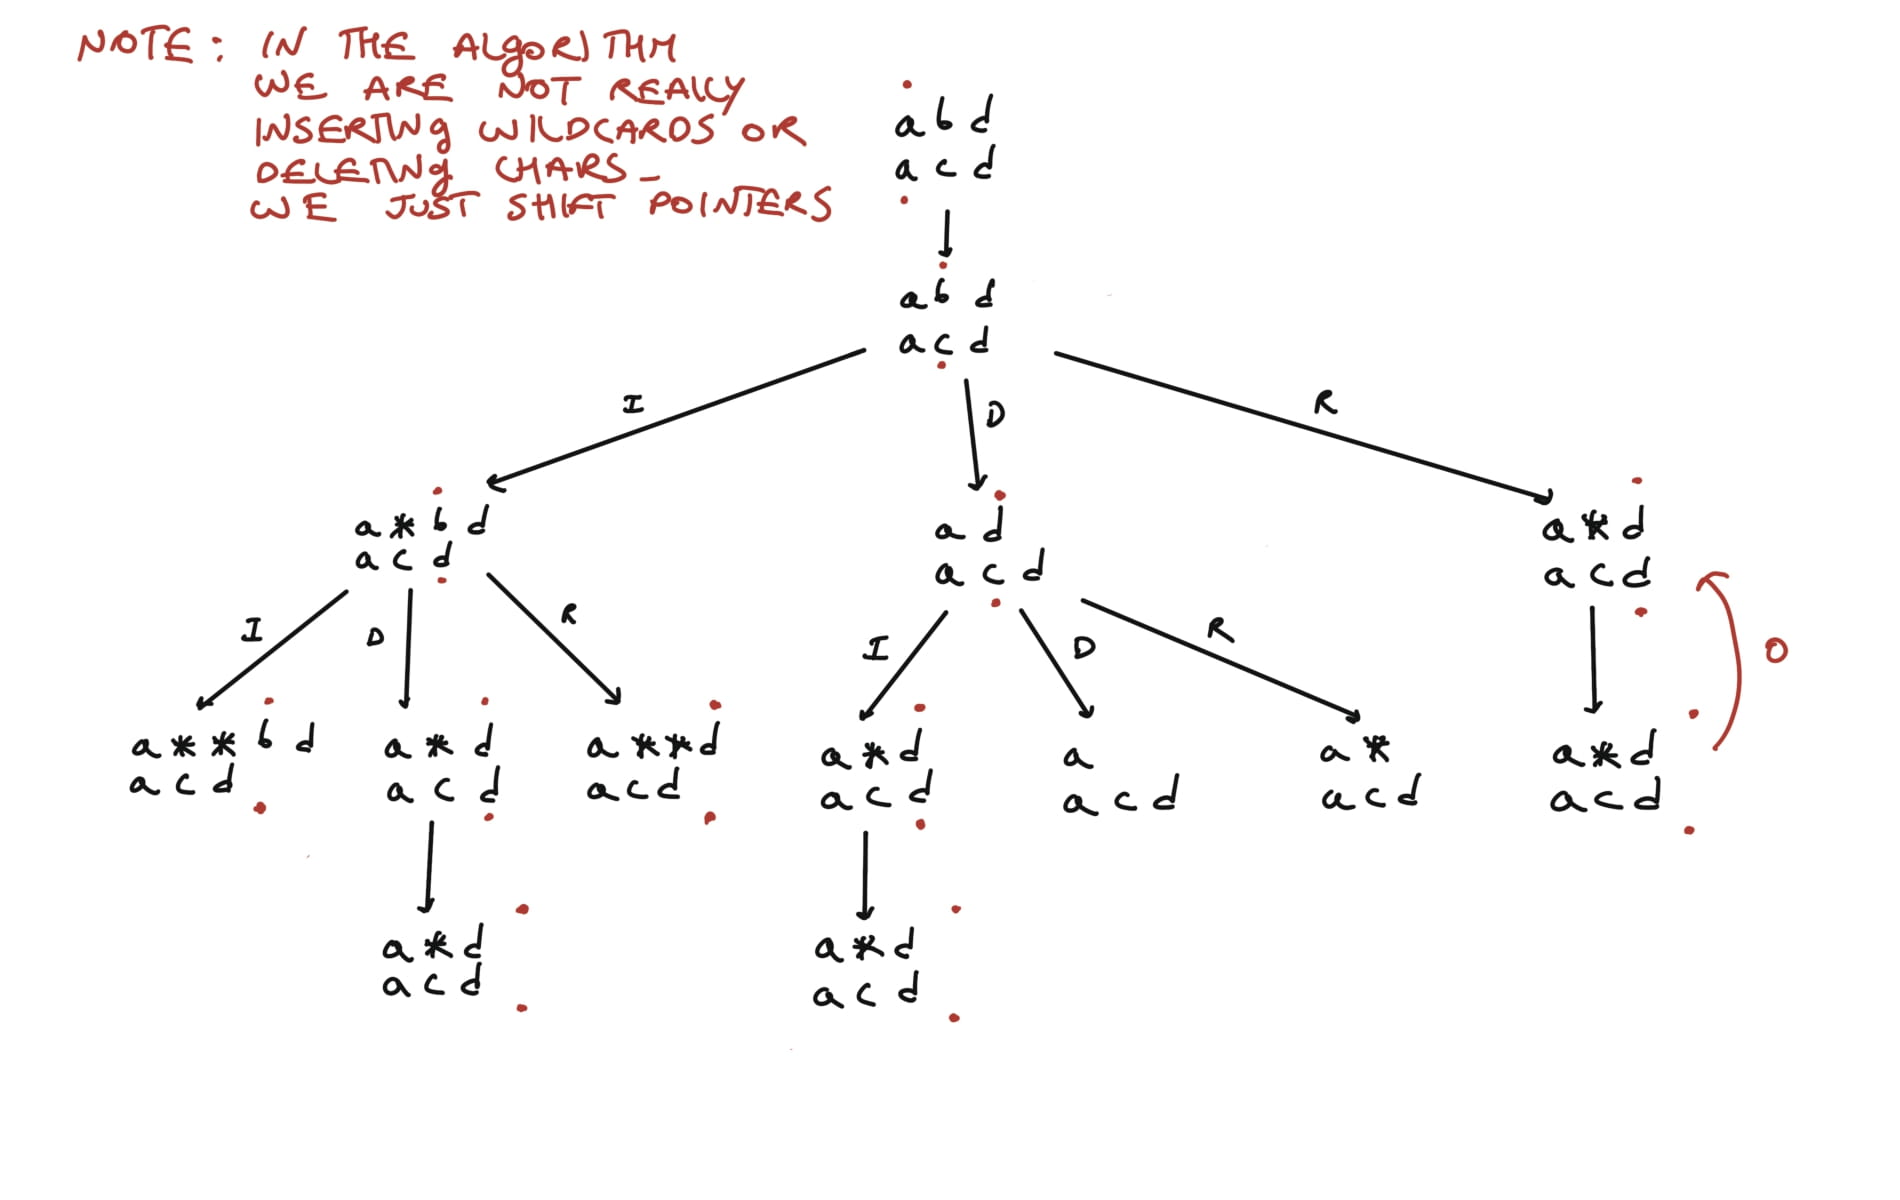 NOTE: IN THE ALgORITHM
WE ARE NOT REALLY
INSERTINg WILDCARDS OR
DELETINg CHARS_
WE JUST SHIFT POINTERS
a b d
a c d
a b d
a c d
I
D
R
a * b d
a c d
a d
a c d
a * d
a c d
I
D
R
I
D
R
O
a * * b d
a c d
a * d
a c d
a * * d
a c d
a * d
a c d
a
a c d
a *
a c d
a * d
a c d
a * d
a c d
a * d
a c d